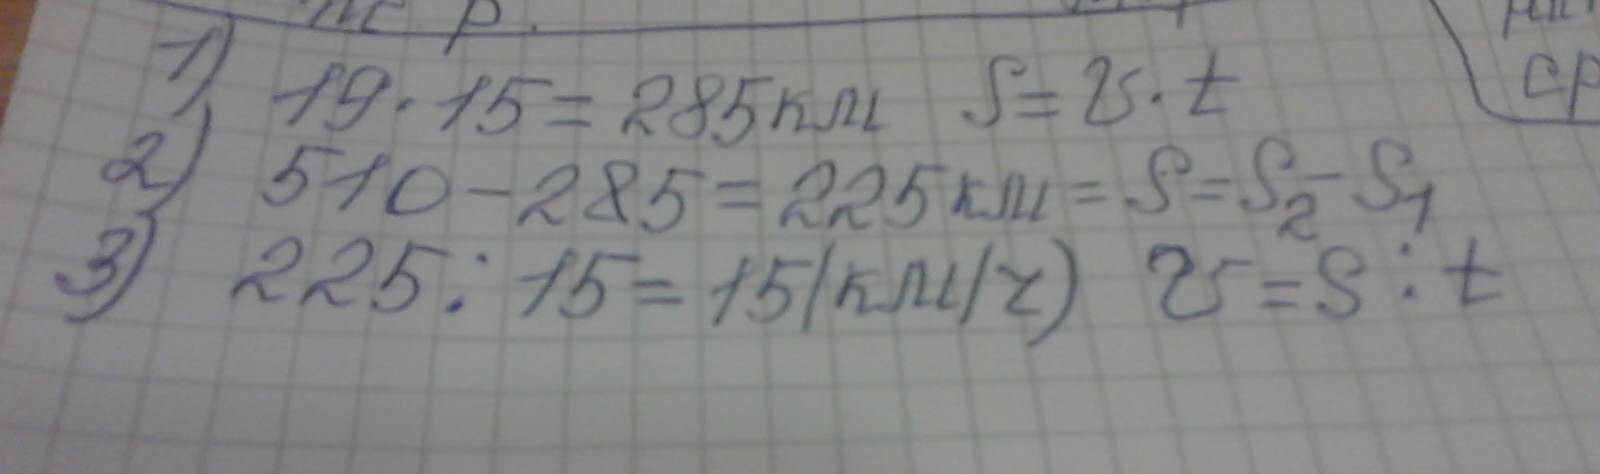 1) 19 · 15 = 285км S = v · t
2) 510 - 285 = 225км = S = S₂ - S₁
3) 225 : 15 = 15(км/ч) v = S : t